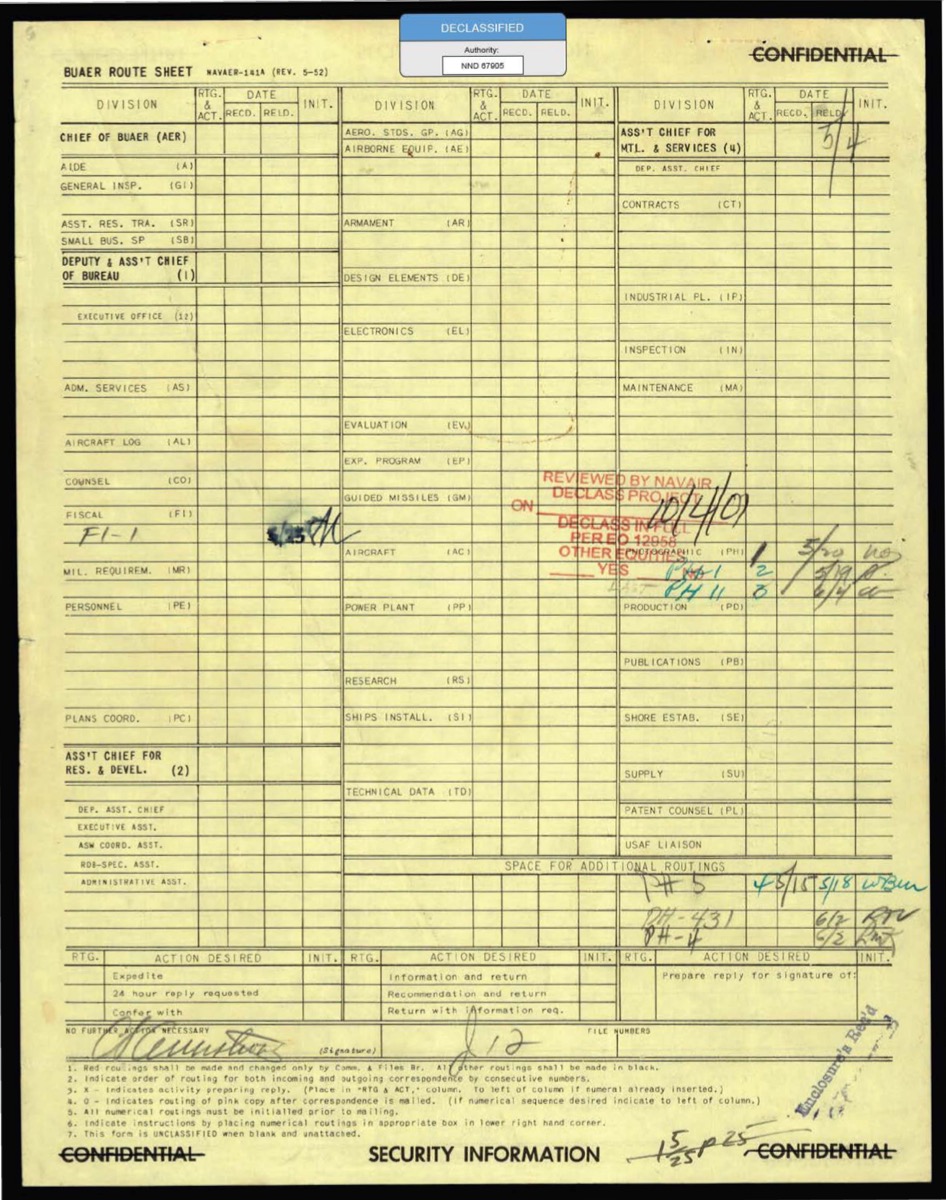 DECLASSIFIED
Authority:
NND 67905
CONFIDENTIAL
BUAER ROUTE SHEET NAVAER-141A (REV. 5-52)
DIVISION RTG. & ACT. DATE RECD. RELD. INIT.
CHIEF OF BUAER (AER)
AIDE (A)
GENERAL INSP. (GI)
ASST. RES. TRA. (SR)
SMALL BUS. SP (SB)
DEPUTY & ASS'T CHIEF
OF BUREAU (1)
EXECUTIVE OFFICE (12)
ADM. SERVICES (AS)
AIRCRAFT LOG (AL)
COUNSEL (CO)
FISCAL (FI)
FI-1 5/25
MIL. REQUIREM. (MR)
PERSONNEL (PE)
PLANS COORD. (PC)
ASS'T CHIEF FOR
RES. & DEVEL. (2)
DEP. ASST. CHIEF
EXECUTIVE ASST.
ASW COORD. ASST.
RDB-SPEC. ASST.
ADMINISTRATIVE ASST.
DIVISION RTG. & ACT. DATE RECD. RELD. INIT.
AERO. STDS. GP. (AG)
AIRBORNE EQUIP. (AE)
ARMAMENT (AR)
DESIGN ELEMENTS (DE)
ELECTRONICS (EL)
EVALUATION (EV)
EXP. PROGRAM (EP)
GUIDED MISSILES (GM)
AIRCRAFT (AC)
POWER PLANT (PP)
RESEARCH (RS)
SHIPS INSTALL. (SI)
TECHNICAL DATA (TD)
REVIEWED BY NAVAIR
DECLASS PROJECT
ON 10/4/01
DECLASS IN FULL
PER EO 12958
OTHER EQUITIES
YES
DIVISION RTG. & ACT. DATE RECD. RELD. INIT.
ASS'T CHIEF FOR
MTL. & SERVICES (4) 5/4
DEP. ASST. CHIEF
CONTRACTS (CT)
INDUSTRIAL PL. (IP)
INSPECTION (IN)
MAINTENANCE (MA)
PHOTOGRAPHIC (PH) 1 5/20
PH-1 2 5/19
PH 11 3 6/4
PRODUCTION (PD)
PUBLICATIONS (PB)
SHORE ESTAB. (SE)
SUPPLY (SU)
PATENT COUNSEL (PL)
USAF LIAISON
SPACE FOR ADDITIONAL ROUTINGS
PH 5 4 5/15 5/18
PH-431 6/2
PH-4 6/2
RTG. ACTION DESIRED INIT. RTG. ACTION DESIRED INIT. RTG. ACTION DESIRED INIT.
Expedite Information and return Prepare reply for signature of:
24 hour reply requested Recommendation and return
Confer with Return with information req.
NO FURTHER ACTION NECESSARY FILE NUMBERS
(Signature) J12
Enclosure's Rec'd
1. Red routings shall be made and changed only by Comm. & Files Br. All other routings shall be made in black.
2. Indicate order of routing for both incoming and outgoing correspondence by consecutive numbers.
3. X - Indicates activity preparing reply. (Place in "RTG & ACT," column. To left of column if numeral already inserted.)
4. O - Indicates routing of pink copy after correspondence is mailed. (If numerical sequence desired indicate to left of column.)
5. All numerical routings must be initialled prior to mailing.
6. Indicate instructions by placing numerical routings in appropriate box in lower right hand corner.
7. This form is UNCLASSIFIED when blank and unattached.
CONFIDENTIAL SECURITY INFORMATION CONFIDENTIAL